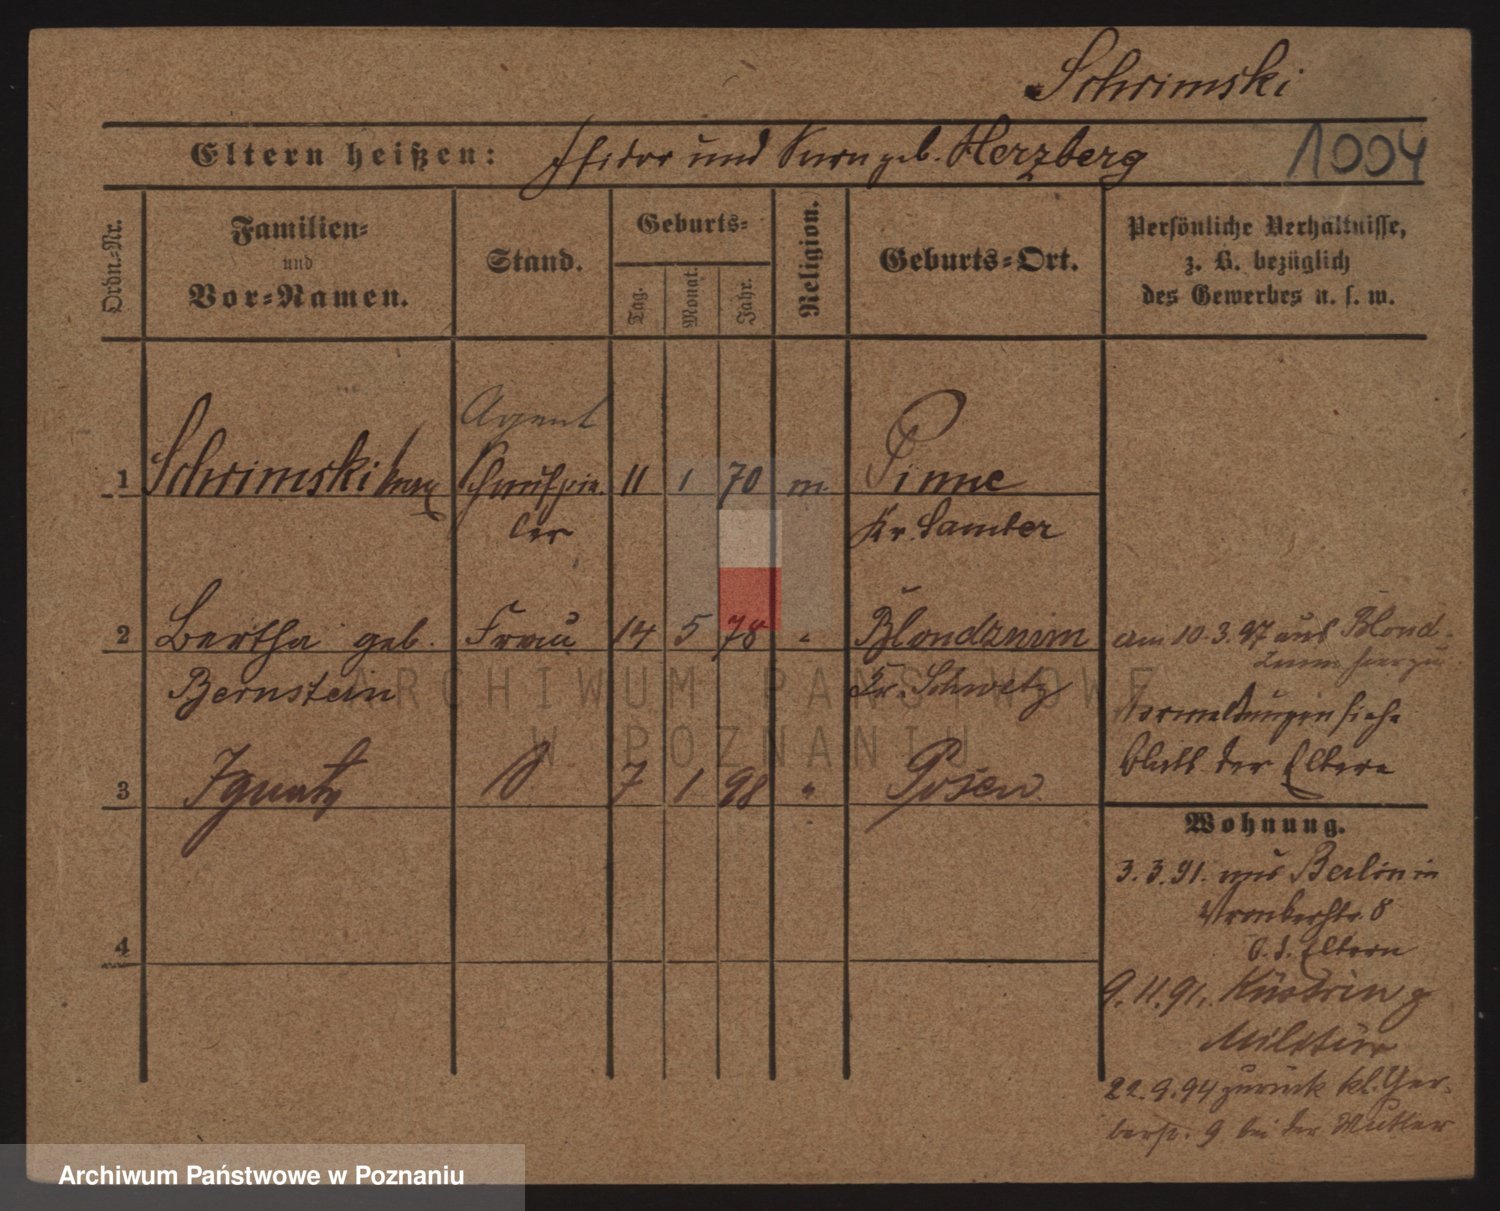 Schrimski
Eltern heißen: Isidor und Sara geb. Herzberg
1004
Ordn.-Nr.
Familien-
und
Vor-Namen.
Stand.
Geburts-
Tag.
Monat.
Jahr.
Religion.
Geburts-Ort.
Persönliche Verhältnisse,
z. B. bezüglich
des Gewerbes u. s. w.
Agent
1 Schrimski Max Schauspie- 11 1 70 m Pinne
ler Kr. Samter
2 Bertha geb. Frau 14 5 78 " Blondzmin
Bernstein Kr. Schwetz
am 10.3.97 aus Blond-
zmin hierzu
siehe
Blatt der Eltern
3 Ignatz S 7 1 98 " Posen
4
Wohnung.
3.3.91. aus Berlin in
Wronkerstr. 8
b. d. Eltern
9.11.91. Küstrin z
Militär
22.9.94 zurück kl. Ger-
berstr. 9 bei der Mutter
ARCHIWUM PAŃSTWOWE
W POZNANIU
Archiwum Państwowe w Poznaniu